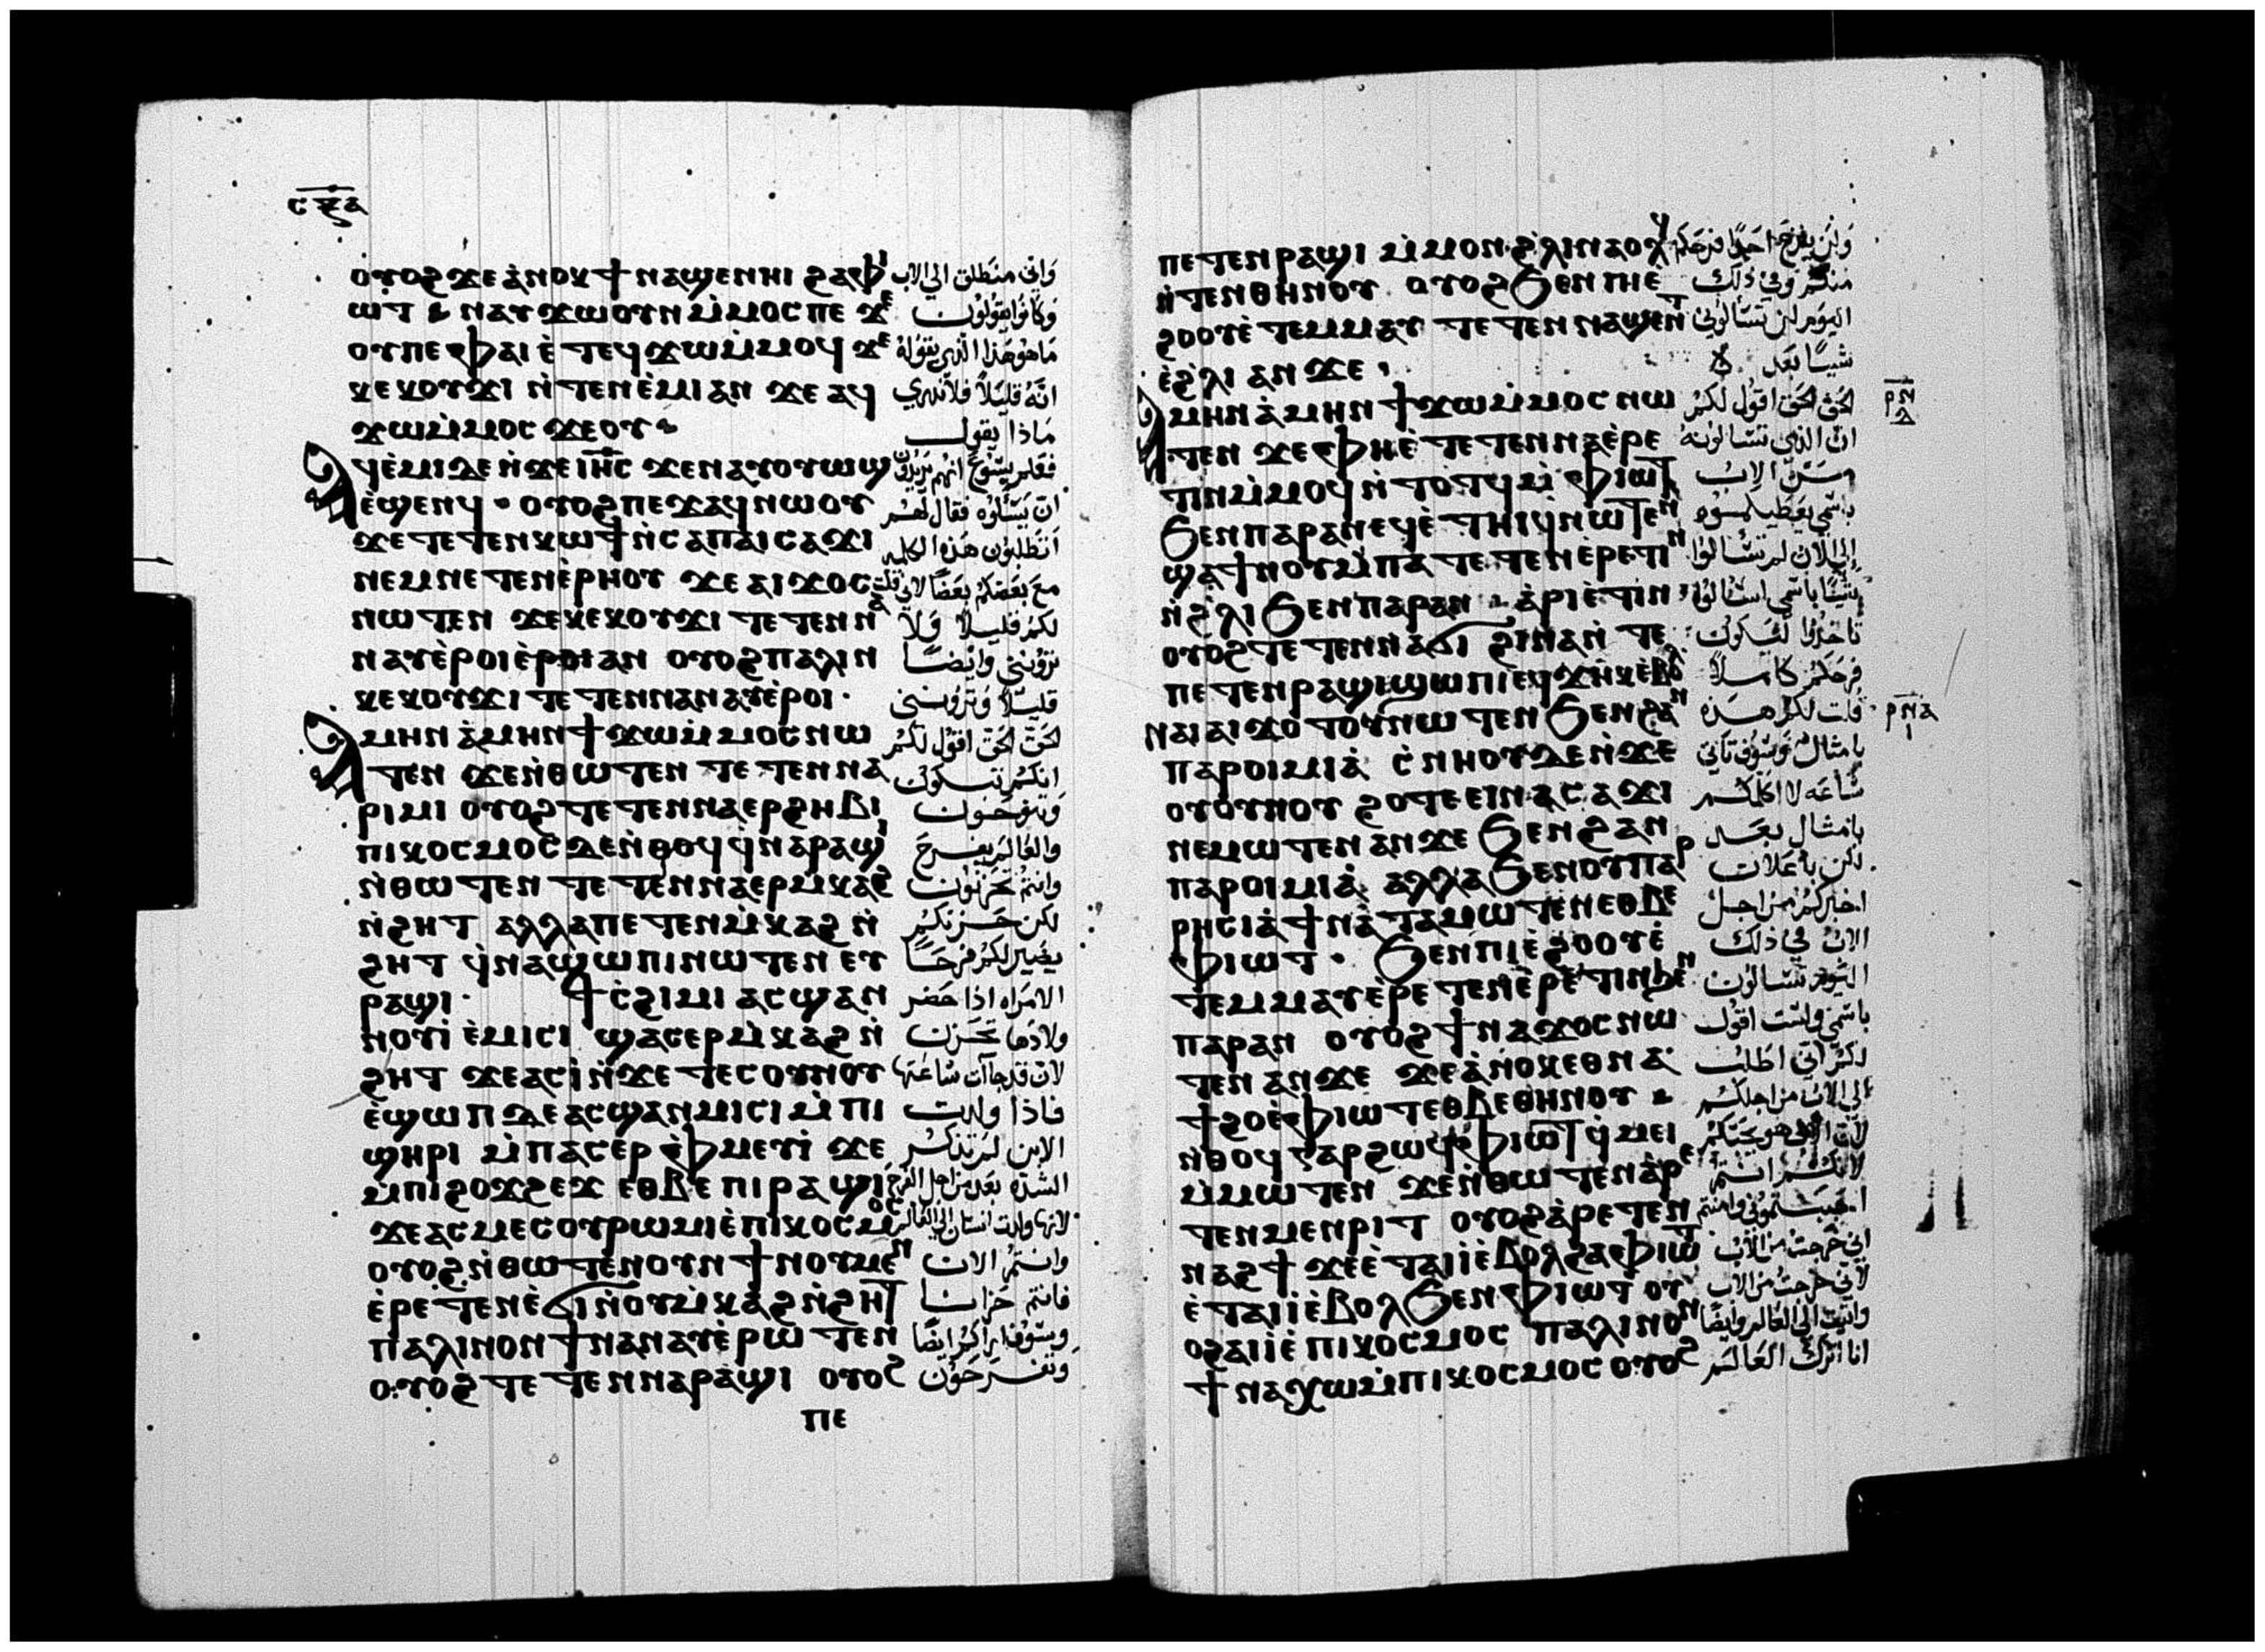 ⲥⲝⲁ
ⲟⲩⲟϩ ϫⲉ ⲁ̀ⲛⲟⲕ ϯⲛⲁϣⲉⲛⲏⲓ ϩⲁ ⲫⲓ
ⲱⲧ ⲛⲁⲩϫⲱ ⲟⲩⲛ ⲙ̀ⲙⲟⲥ ⲡⲉ ϫⲉ
ⲟⲩ ⲡⲉ ⲫⲁⲓ ⲉ̀ⲧⲉϥϫⲱ ⲙ̀ⲙⲟϥ ϫⲉ
ⲕⲉⲕⲟⲩϫⲓ ⲛ̀ⲧⲉⲛⲉ̀ⲙⲓ ⲁⲛ ϫⲉ ⲁϥ
ϫⲱ ⲙ̀ⲙⲟⲥ ϫⲉ ⲟⲩ
ⲁϥⲉ̀ⲙⲓ ⲇⲉ ⲛ̀ϫⲉ ⲓⲏⲥ ϫⲉ ⲛⲁⲩⲟⲩⲱϣ
ⲉ̀ϣⲉⲛϥ ⲟⲩⲟϩ ⲡⲉϫⲁϥ ⲛⲱⲟⲩ
ϫⲉ ⲧⲉⲧⲉⲛⲕⲱϯ ⲛ̀ⲥⲁ ⲡⲁⲓⲥⲁϫⲓ
ⲛⲉⲙ ⲛⲉⲧⲉⲛⲉ̀ⲣⲏⲟⲩ ϫⲉ ⲁⲓϫⲟⲥ
ⲛⲱⲧⲉⲛ ϫⲉ ⲕⲉⲕⲟⲩϫⲓ ⲧⲉⲧⲉⲛⲛ
ⲛⲁⲩ ⲉ̀ⲣⲟⲓ ⲉ̀ⲣⲟⲓ ⲁⲛ ⲟⲩⲟϩ ⲡⲁⲗⲓⲛ
ⲕⲉⲕⲟⲩϫⲓ ⲧⲉⲧⲉⲛⲛⲁⲛⲁⲩ ⲉ̀ⲣⲟⲓ
ⲁⲙⲏⲛ ⲁ̀ⲙⲏⲛ ϯϫⲱ ⲙ̀ⲙⲟⲥ ⲛⲱ
ⲧⲉⲛ ϫⲉ ⲛ̀ⲑⲱⲧⲉⲛ ⲧⲉⲧⲉⲛⲛⲁ
ⲣⲓⲙⲓ ⲟⲩⲟϩ ⲧⲉⲧⲉⲛⲛⲁⲉⲣϩⲏⲃⲓ
ⲡⲓⲕⲟⲥⲙⲟⲥ ⲇⲉ ⲛ̀ⲑⲟϥ ϥ̀ⲛⲁⲣⲁϣⲓ
ⲛ̀ⲑⲱⲧⲉⲛ ⲧⲉⲧⲉⲛⲛⲁⲉⲣⲙ̀ⲕⲁϩ
ⲛ̀ϩⲏⲧ ⲁⲗⲗⲁ ⲡⲉⲧⲉⲛⲙ̀ⲕⲁϩ ⲛ̀
ϩⲏⲧ ϥ̀ⲛⲁϣⲱⲡⲓ ⲛⲱⲧⲉⲛ ⲉⲩ
ⲣⲁϣⲓ ϯⲥ̀ϩⲓⲙⲓ ⲁⲥϣⲁⲛ
ⲛⲟⲩⲓ̀ ⲉ̀ⲙⲓⲥⲓ ϣⲁⲥⲉⲣⲙ̀ⲕⲁϩ ⲛ̀
ϩⲏⲧ ϫⲉ ⲁⲥⲓ̀ ⲛ̀ϫⲉ ⲧⲉⲥⲟⲩⲛⲟⲩ
ⲉ̀ϣⲱⲡ ⲇⲉ ⲁⲥϣⲁⲛⲙⲓⲥⲓ ⲙ̀ⲡⲓ
ϣⲏⲣⲓ ⲙ̀ⲡⲁⲥⲉⲣ ⲉ̀ⲫⲙⲉⲩⲓ̀ ϫⲉ
ⲙ̀ⲡⲓϩⲟϫϩⲉϫ ⲉⲑⲃⲉ ⲡⲓⲣⲁϣⲓ
ϫⲉ ⲁⲥⲙⲉⲥ ⲟⲩⲣⲱⲙⲓ ⲉ̀ⲡⲓⲕⲟⲥⲙⲟⲥ
ⲟⲩⲟϩ ⲛ̀ⲑⲱⲧⲉⲛ ⲟⲩⲛ ϯⲛⲟⲩ ⲙⲉⲛ
ⲉ̀ⲣⲉⲧⲉⲛⲉ̀ϭⲓ ⲛ̀ⲟⲩⲙ̀ⲕⲁϩ ⲛ̀ϩⲏⲧ
ⲡⲁⲗⲓⲛ ⲟⲛ ϯⲛⲁⲛⲁⲩ ⲉ̀ⲣⲱⲧⲉⲛ
ⲟⲩⲟϩ ⲧⲉⲧⲉⲛⲛⲁⲣⲁϣⲓ ⲟⲩⲟϩ
ⲡⲉ
واني منطلق الي الاب
وكانوا يقولون
ما هو هذا الذي يقوله
انه قليلا فلا ندري
ماذا يقول
فعلم يسوع انهم يريدون
ان يسألوه فقال لهم
اتطلبون هذه الكلمه
مع بعضكم بعضا لاني قلت
لكم قليلا ولا
تروني وايضا
قليلا وتروننى
الحق الحق اقول لكم
انكم تبكون
وتنوحون
والعالم يفرح
وانتم تحزنون
لكن حزنكم
يصير لكم فرحا
الامراه اذا حضر
ولادها تحزن
لان قد جاآت ساعتها
فاذا ولدت
الابن لم تذكر
الشده بعد من اجل الفرح
لانها ولدت انسان الي العالم
وانتم الان
فانتم حزانا
وسوف اراكم ايضا
وتفرحون
ⲡⲉⲧⲉⲛⲣⲁϣⲓ ⲙ̀ⲙⲟⲛ ϩ̀ⲗⲓ ⲛⲁⲟⲗϥ
ⲛ̀ⲧⲉⲛⲑⲏⲛⲟⲩ ⲟⲩⲟϩ ϧⲉⲛ ⲡⲓⲉ̀
ϩⲟⲟⲩ ⲉ̀ⲧⲉⲙⲙⲁⲩ ⲧⲉⲧⲉⲛⲛⲁϣⲉⲛⲧ
ⲉ̀ϩ̀ⲗⲓ ⲁⲛ ϫⲉ
ⲁⲙⲏⲛ ⲁ̀ⲙⲏⲛ ϯϫⲱ ⲙ̀ⲙⲟⲥ ⲛⲱ
ⲧⲉⲛ ϫⲉ ⲫⲏ ⲉ̀ⲧⲉⲧⲉⲛⲛⲁⲉ̀ⲣⲉ
ⲧⲓⲛ ⲙ̀ⲙⲟϥ ⲛ̀ⲧⲟⲧϥ ⲙ̀ⲫⲓⲱⲧ
ϧⲉⲛ ⲡⲁⲣⲁⲛ ⲉϥⲉ̀ⲧⲏⲓϥ ⲛⲱⲧⲉⲛ
ϣⲁ ϯⲛⲟⲩ ⲙ̀ⲡⲁⲧⲉⲧⲉⲛⲉ̀ⲣⲉⲧⲓⲛ
ⲛ̀ϩ̀ⲗⲓ ϧⲉⲛ ⲡⲁⲣⲁⲛ ⲁ̀ⲣⲓⲉ̀ⲧⲓⲛ
ⲟⲩⲟϩ ⲧⲉⲧⲉⲛⲛⲁϭⲓ ϩⲓⲛⲁ ⲛ̀ⲧⲉ
ⲡⲉⲧⲉⲛⲣⲁϣⲓ ϣⲱⲡⲓ ⲉϥϫⲏⲕ ⲉ̀ⲃⲟⲗ
ⲛⲁⲓ ⲁⲓϫⲟⲧⲟⲩ ⲛⲱⲧⲉⲛ ϧⲉⲛ ϩⲁⲛ
ⲡⲁⲣⲟⲓⲙⲓⲁ̀ ⲥ̀ⲛⲏⲟⲩ ⲇⲉ ⲛ̀ϫⲉ
ⲟⲩⲟⲩⲛⲟⲩ ϩⲟⲧⲉ ⲉⲓⲛⲁⲥⲁϫⲓ
ⲛⲉⲙⲱⲧⲉⲛ ⲁⲛ ϫⲉ ϧⲉⲛ ϩⲁⲛ
ⲡⲁⲣⲟⲓⲙⲓⲁ̀ ⲁⲗⲗⲁ ϧⲉⲛ ⲟⲩⲡⲁⲣ
ⲣⲏⲥⲓⲁ̀ ϯⲛⲁⲧⲁⲙⲱⲧⲉⲛ ⲉⲑⲃⲉ
ⲫⲓⲱⲧ ϧⲉⲛ ⲡⲓⲉ̀ϩⲟⲟⲩ ⲉ̀
ⲧⲉⲙⲙⲁⲩ ⲉ̀ⲣⲉⲧⲉⲛⲉ̀ⲣⲉ̀ⲧⲓⲛ ϧⲉⲛ
ⲡⲁⲣⲁⲛ ⲟⲩⲟϩ ϯⲛⲁϫⲟⲥ ⲛⲱ
ⲧⲉⲛ ⲁⲛ ϫⲉ ϫⲉ ⲁ̀ⲛⲟⲕ ⲉⲑⲛⲁ
ϯϩⲟ ⲉ̀ⲫⲓⲱⲧ ⲉⲑⲃⲉⲑⲏⲛⲟⲩ
ⲛⲑⲟϥ ⲅⲁⲣ ϩⲱϥ ⲫⲓⲱⲧ ϥ̀ⲙⲉⲓ
ⲙ̀ⲙⲱⲧⲉⲛ ϫⲉ ⲛ̀ⲑⲱⲧⲉⲛ ⲁ̀ⲣⲉ
ⲧⲉⲛⲙⲉⲛⲣⲓⲧ ⲟⲩⲟϩ ⲁ̀ⲣⲉⲧⲉⲛ
ⲛⲁϩϯ ϫⲉ ⲉ̀ⲧⲁⲓⲓ̀ ⲉ̀ⲃⲟⲗ ϩⲁ ⲫⲓⲱⲧ
ⲉ̀ⲧⲁⲓⲓ̀ ⲉ̀ⲃⲟⲗ ϧⲉⲛ ⲫⲓⲱⲧ ⲟⲩ
ⲟϩ ⲁⲓⲓ̀ ⲉ̀ⲡⲓⲕⲟⲥⲙⲟⲥ ⲡⲁⲗⲓⲛ ⲟⲛ
ϯⲛⲁⲭⲱ ⲙ̀ⲡⲓⲕⲟⲥⲙⲟⲥ ⲟⲩⲟϩ
ولن يفرح احدا فرحكم
منكم وفي ذلك
اليوم لن تسالوني
شيئا بعد
الحق الحق اقول لكم
ان الذي تسالونه
من الاب
باسمي يعطيكموه
الي الان لم تسالوا
شيئا باسمي اسالوا
تاخذوا ليكون
فرحكم كاملا
قلت لكم هذه
بامثال وسوف تاتي
ساعه لا اكلمكم
بامثال بعد
لكن باعلان
اخبركم من اجل
الاب في ذلك
اليوم تسالون
باسمي ولست اقول
لكم اني اطلب
الي الاب من اجلكم
لان الاب هو يحبكم
لانكم انتم
احببتموني وامنتم
اني خرجت من الاب
لاني خرجت من الاب
واتيت الي العالم وايضا
انا اترك العالم
ⲣⲛⲇ
ⲣⲛⲁ